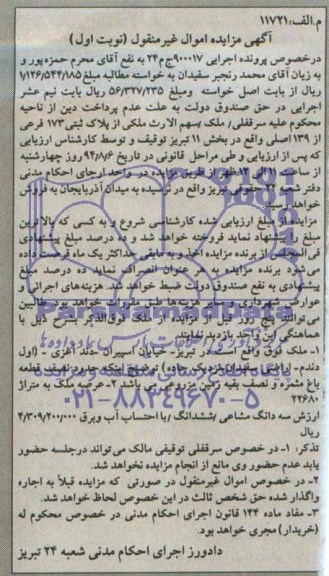 م.الف:۱۱۷۲۱
آگهی مزایده اموال غیرمنقول (نوبت اول)
درخصوص پرونده اجرایی ۹۰۰۰۱۷ج م۲۴ به نفع آقای محرم حمزه پور و
به زیان آقای محمد رنجبر سفیدان به خواسته مطالبه مبلغ ۱/۱۲۶/۵۴۴/۱۸۵
ریال از بابت اصل خواسته ومبلغ ۵۶/۳۲۷/۲۳۵ ریال بابت نیم عشر
اجرایی در حق صندوق دولت به علت عدم پرداخت دین از ناحیه
محکوم علیه سرقفلی/ ملک /سهم الارث ملکی از پلاک ثبتی۱۷۳ فرعی
از ۱۳۹اصلی واقع در بخش ۱۱ تبریز توقیف و توسط کارشناس ارزیابی
که پس از ارزیابی و طی مراحل قانونی در تاریخ ۹۴/۸/۶ روز چهارشنبه
از ساعت الی ظهر از طریق مزایده در واحد اجرای احکام مدنی
دفتر شعبه ۲۴ حقوقی تبریز واقع در نرسیده به میدان آذربایجان به فروش
خواهد رسید.
مزایده از مبلغ ارزیابی شده کارشناسی شروع و به کسی که بالاترین
مبلغ را پیشنهاد نماید فروخته خواهد شد و ده درصد مبلغ پیشنهادی
فی المجلس از برنده مزایده اخذ و به مابقی حداکثر یک ماه فرصت داده
می شود برنده مزایده به هر عنوان انصراف نماید ده درصد مبلغ
پیشنهادی به نفع صندوق دولت ضبط خواهد شد. هزینه های اجرایی از
عوارض شهرداری و سایر هزینه ها طبق مقررات خواهد بود. طالبین
می توانند پنج روز قبل از مزایده از ملک فوق الذکر بشرح ذیل با
هماهنگی این واحد بازدید نمایند.
۱- ملک فوق واقع است در تبریز- خیابان اسپیران -دند آغزی - (اول
دندم- اراضی سفیدان نزدیک جاده) توضیح اینکه حدود نصف قطعه
باغ مثمره و نصف بقیه زمین مزروعی می باشد ۲- عرصه ملک به متراژ
۲۲۶۸۰
ارزش سه دانگ مشاعی /ششدانگ /با احتساب آب وبرق ۴/۳۰۹/۲۰۰/۰۰۰
ریال
تذکر: ۱- در خصوص سرقفلی توقیفی مالک می تواند درجلسه حضور
یابد عدم حضور وی مانع از انجام مزایده نخواهد شد.
۲- در خصوص اموال غیرمنقول در صورتی که مزایده قبلاً به اجاره
واگذار شده حق شخص ثالث در این خصوص لحاظ خواهد شد.
۳- مفاد ماده ۱۴۴ قانون اجرای احکام مدنی در خصوص محکوم له
(خریدار) مجری خواهد بود.
دادورز اجرای احکام مدنی شعبه ۲۴ تبریز
ParsNamadData
۰۲۱-۸۸۳۴۹۶۷۰-۵